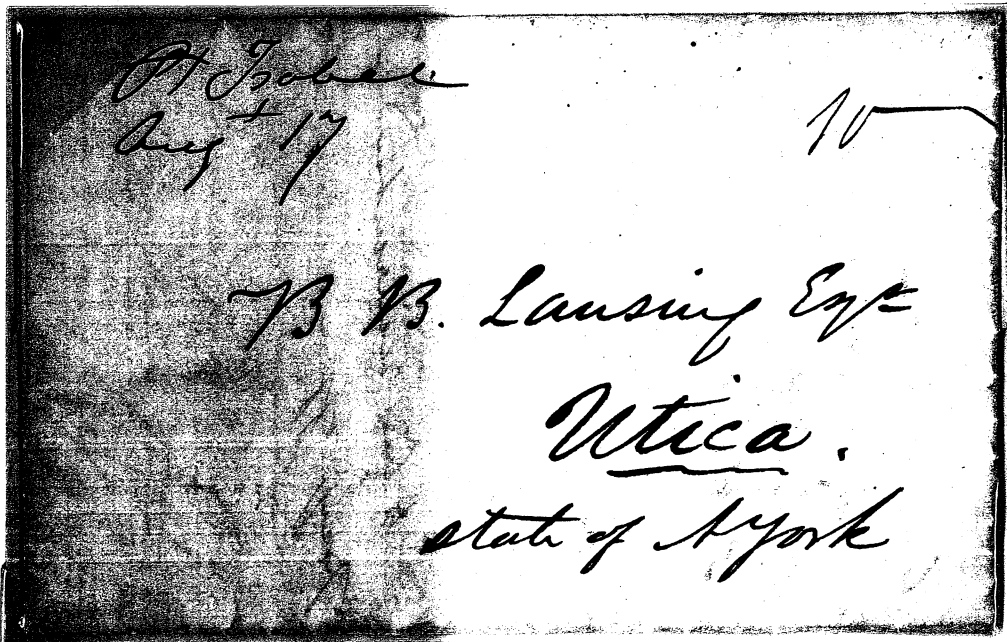 Pt Isabel
Augt 17
10
B B. Lansing Esqr
Utica.
state of N York